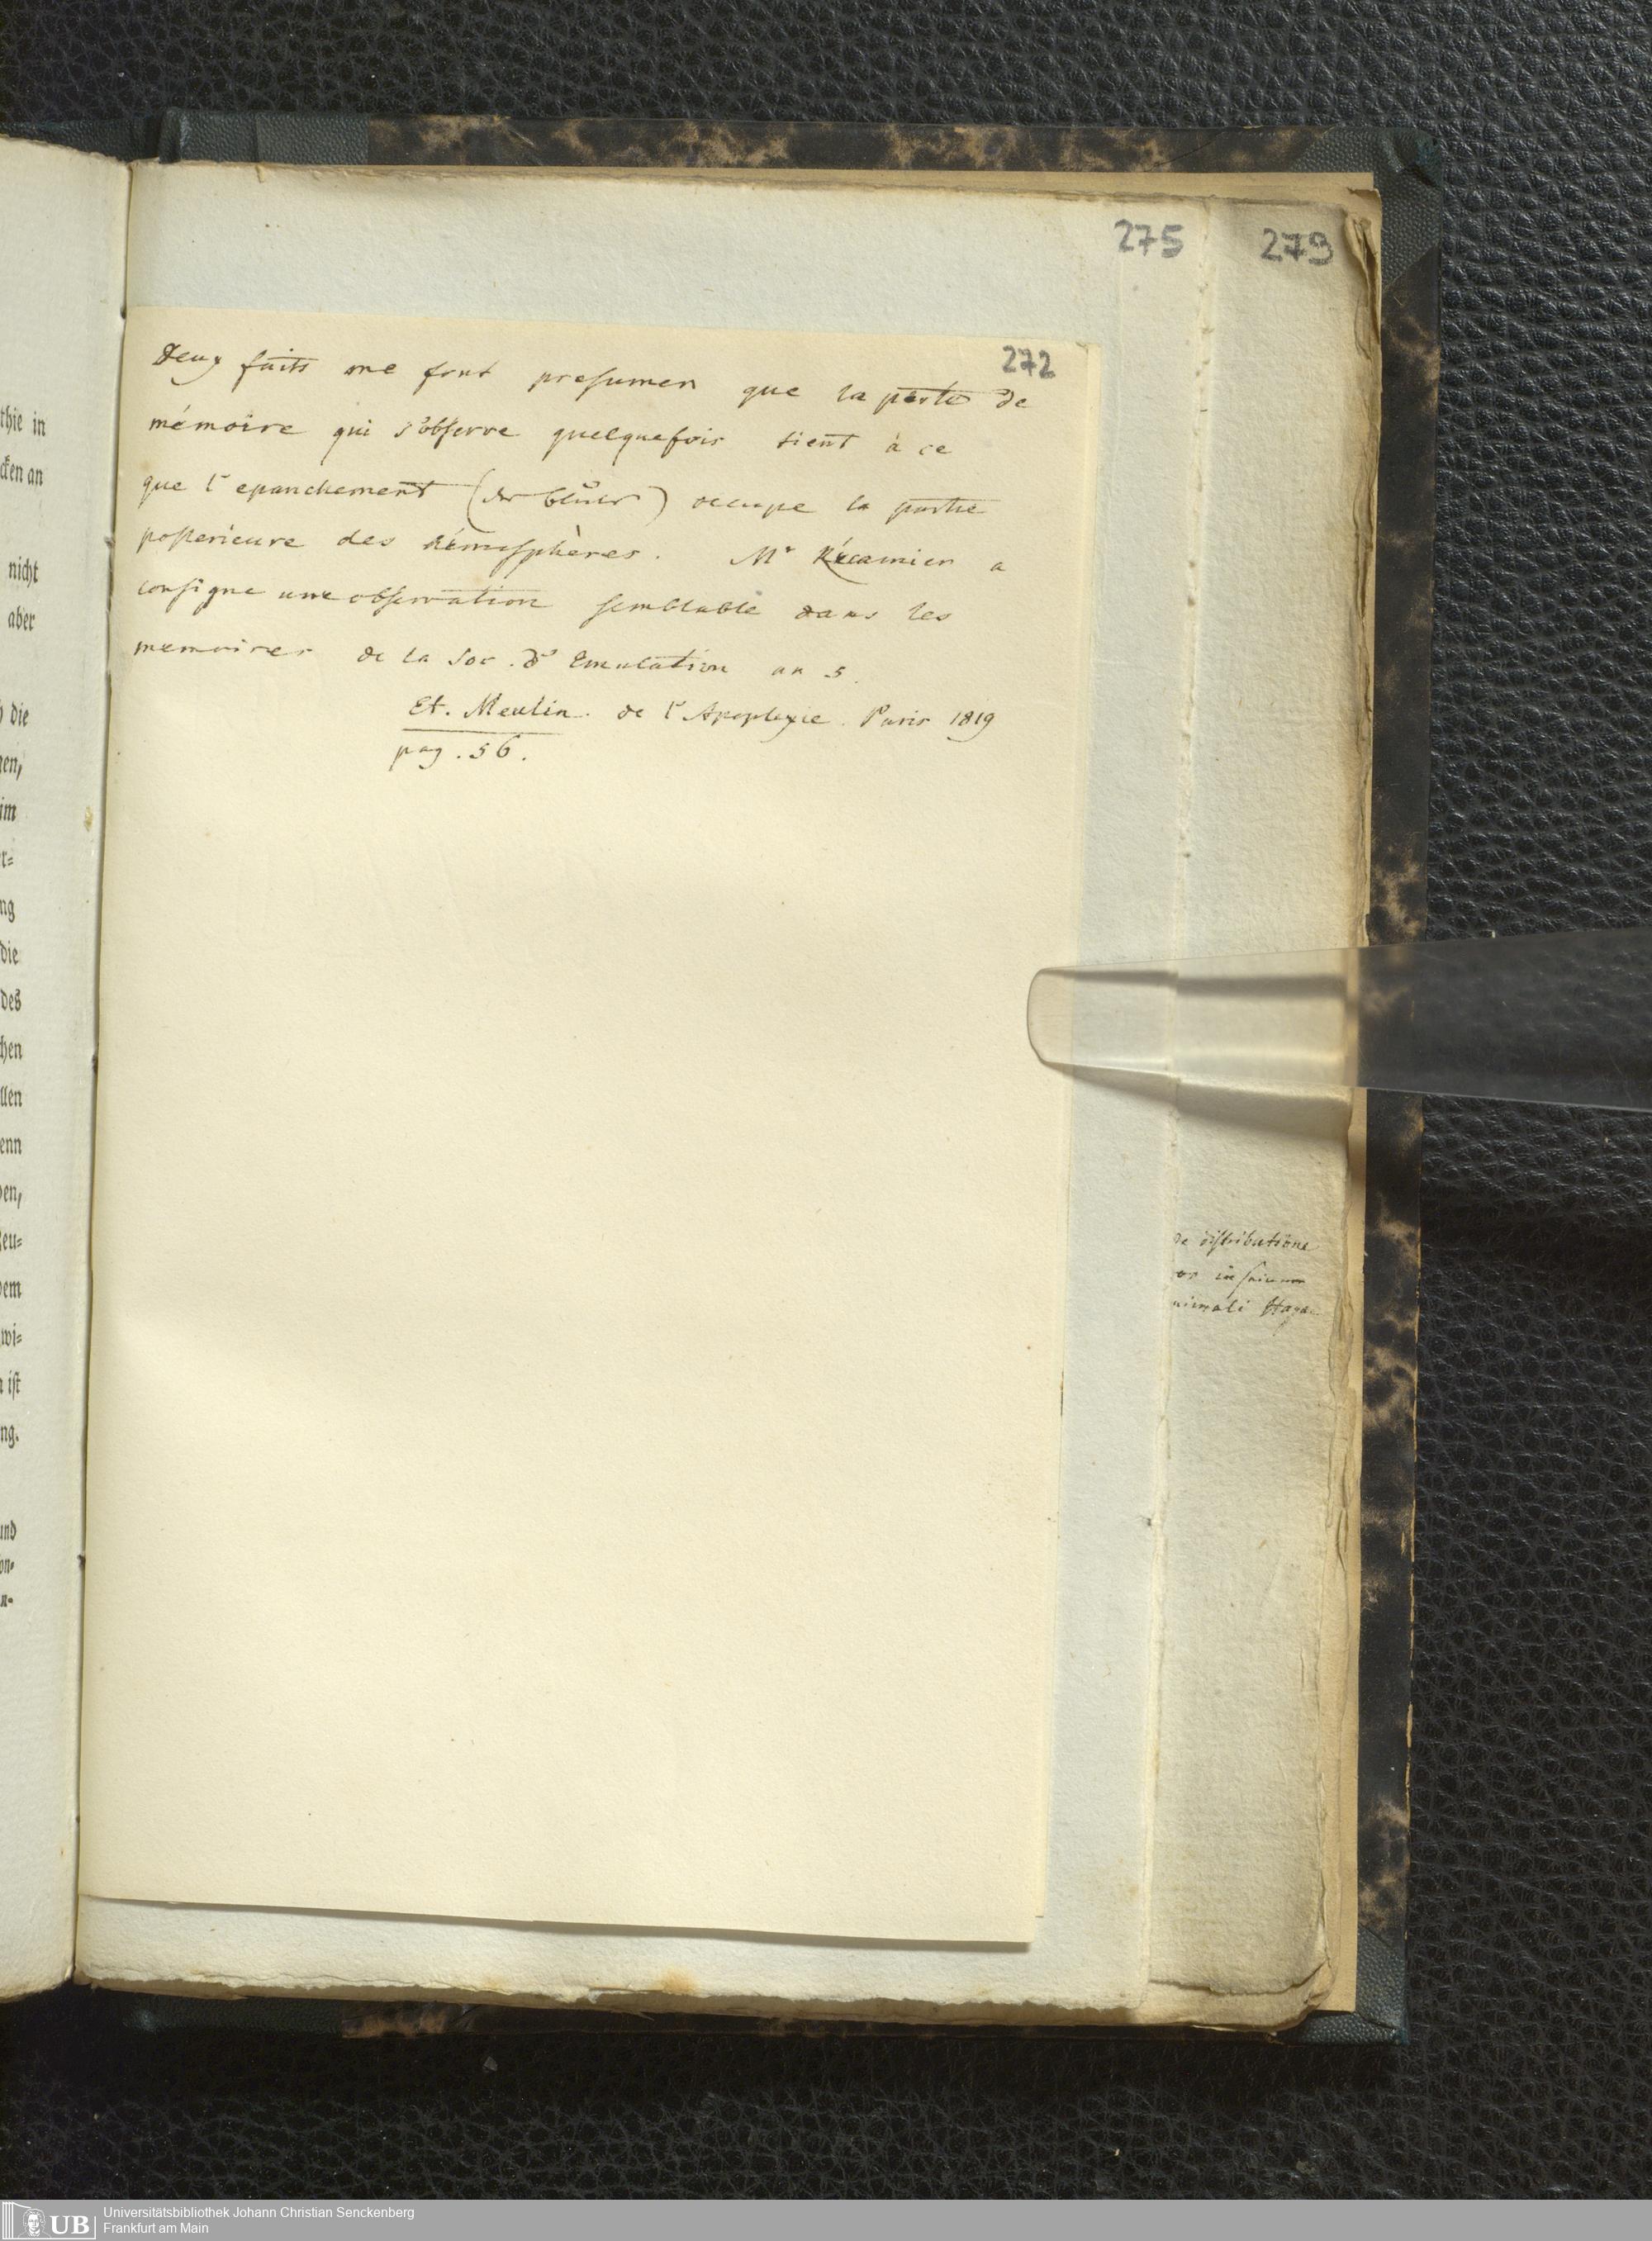 275
279
272
Deux faits me font presumer que la perte de
mémoire qui s'observe quelquefois tient à ce
que l'epanchement (des bluts) occupe la partie
posterieure des hémisphères. Mr Récamier a
consigne une observation semblable dans les
memoires de la Soc. d'Emulation an 5.
Et. Meulin. de l'Apoplexie. Paris 1819
pag. 56.
de distributione
nimali Haga
thie in
cken an
nicht
aber
die
en,
im
r=
ng
die
des
hen
llen
enn
en,
eu=
em
wi=
ist
ng.
und
on-
n-
UB
Universitätsbibliothek Johann Christian Senckenberg
Frankfurt am Main